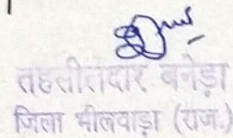 तहसीलदार बनेड़ा
जिला भीलवाड़ा (राज.)